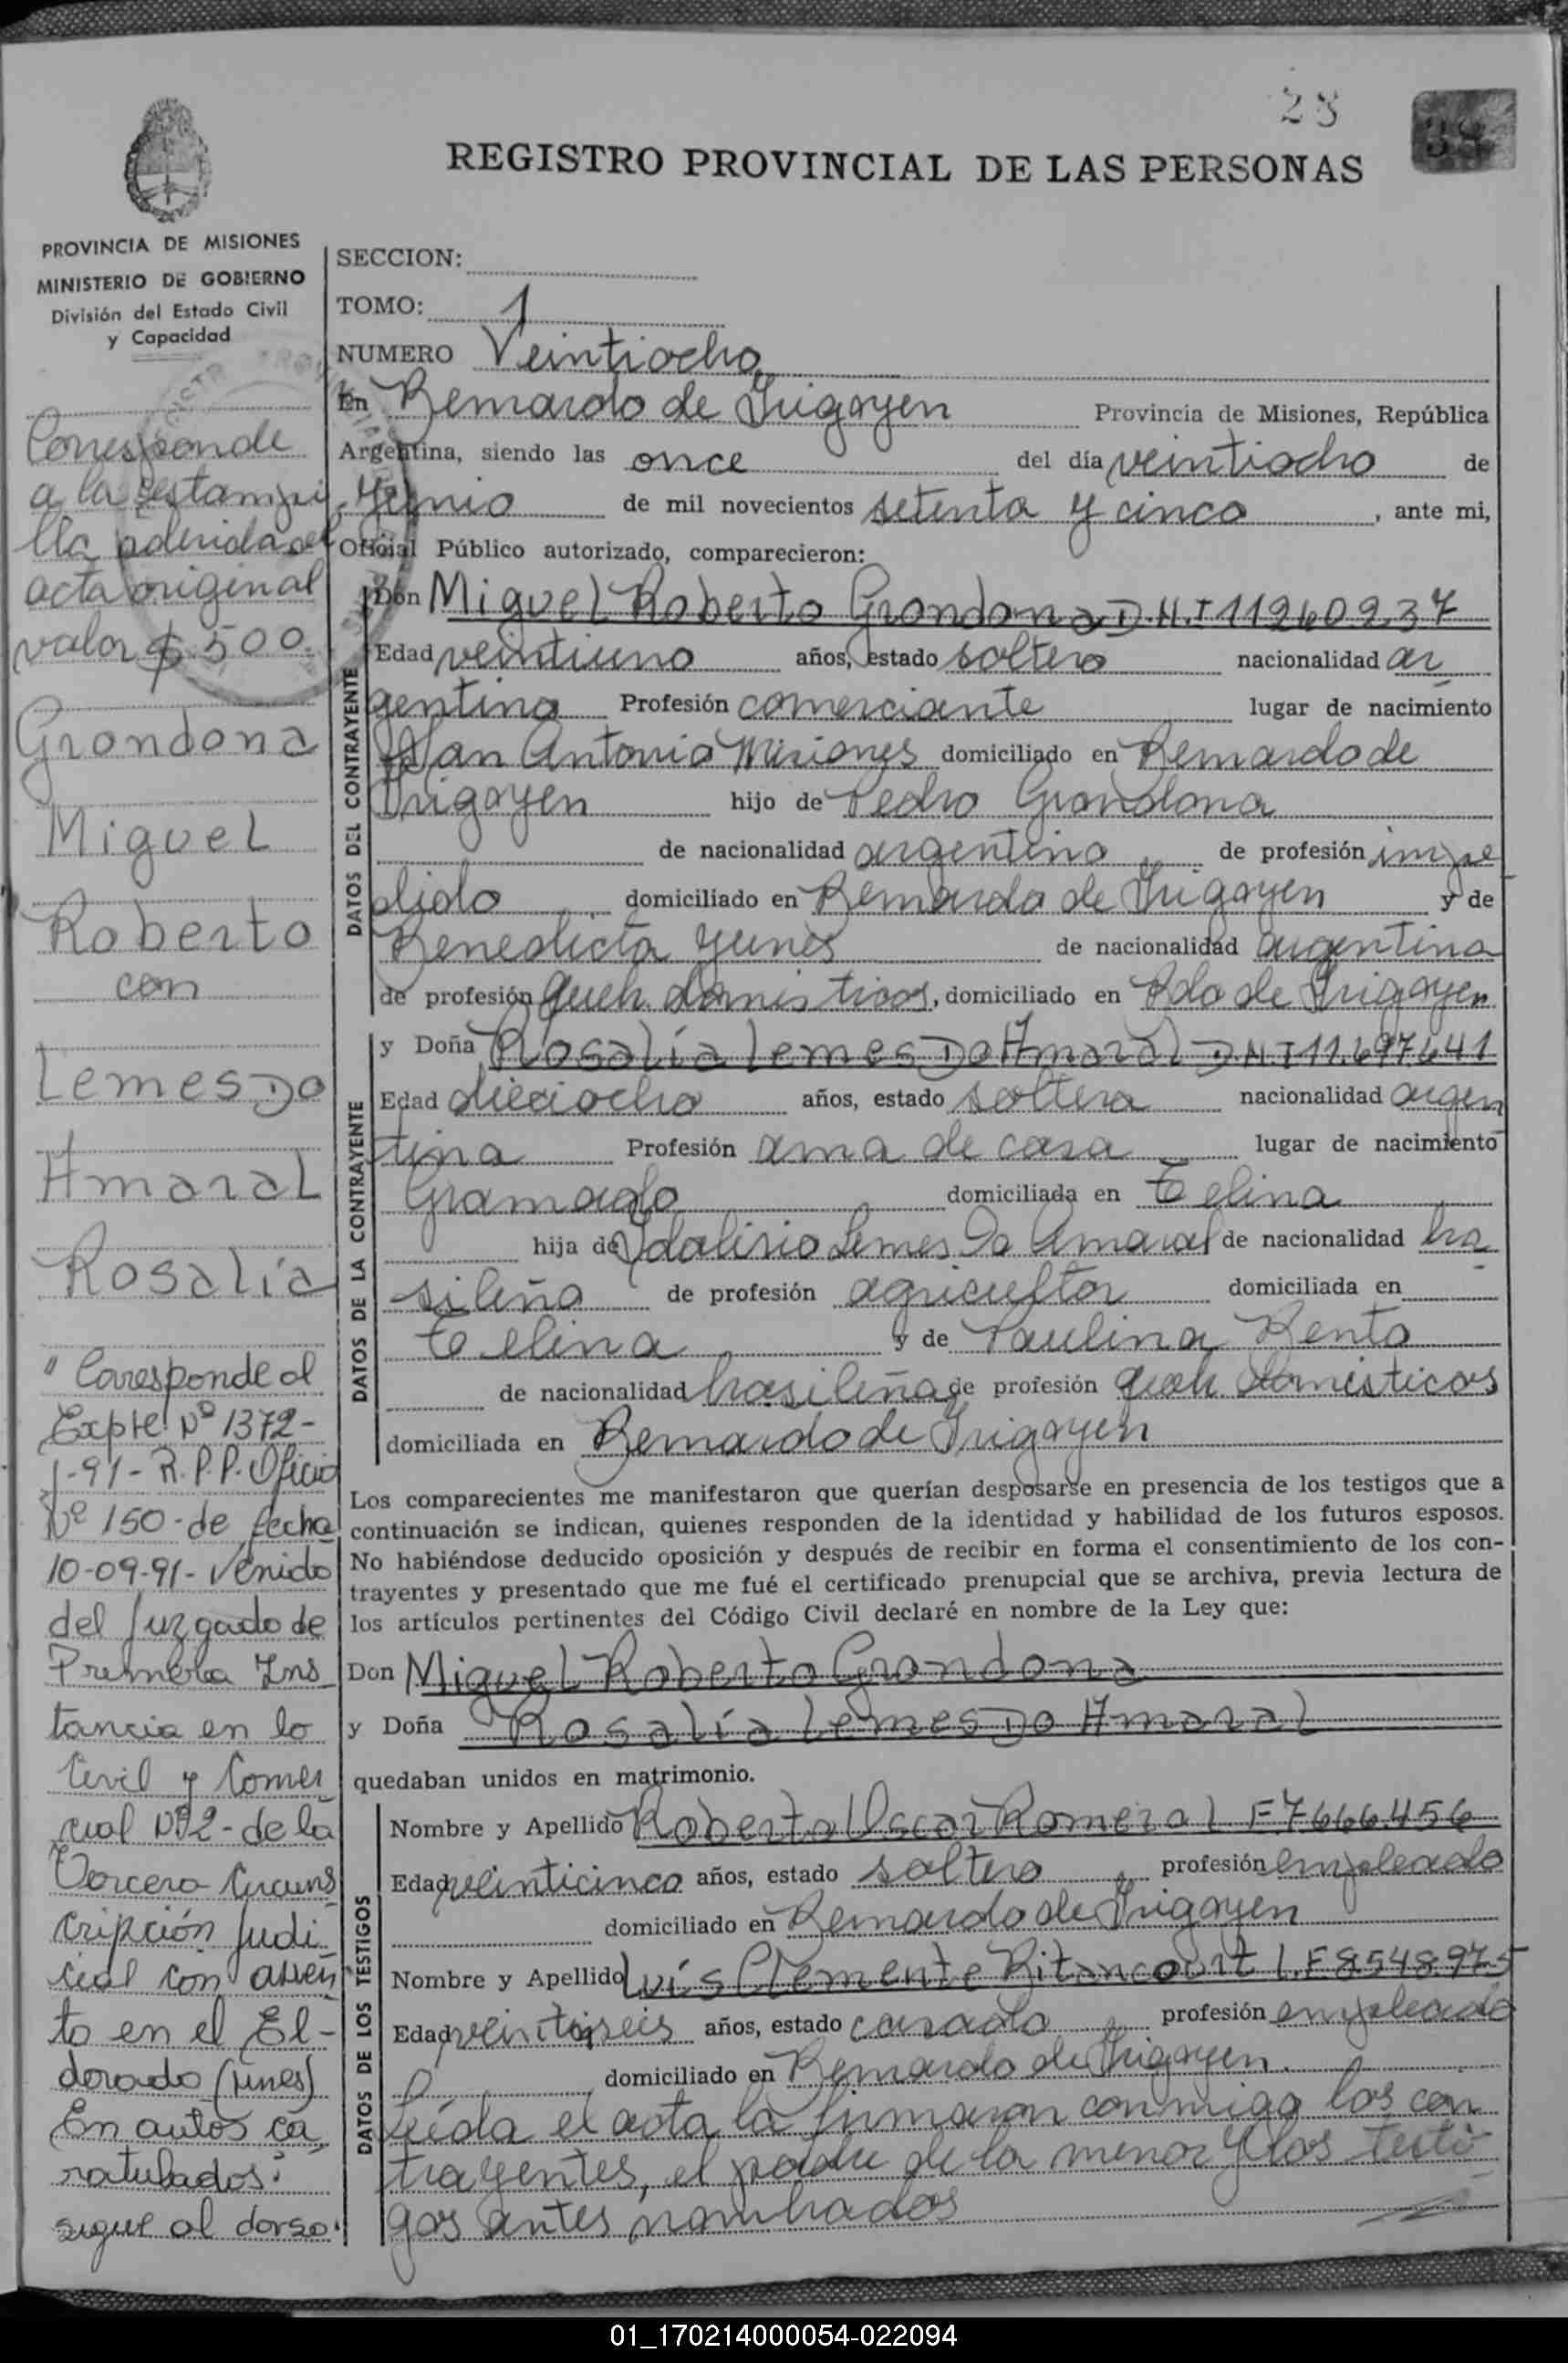 28
REGISTRO PROVINCIAL DE LAS PERSONAS
PROVINCIA DE MISIONES
MINISTERIO DE GOBIERNO
División del Estado Civil
y Capacidad
Corresponde
a la estampi
lla adherida al
acta original
valor $ 500.
Grondona
Miguel
Roberto
con
Lemes Do
Amaral
Rosalía
" Corresponde al
Expte. Nº 1372-
J-91- R.P.P. Oficio
Nº 150 - de fecha
10-09-91- Venido
del Juzgado de
Primera Ins
tancia en lo
Civil y Comer
cial Nº 2 - de la
Tercera Circuns
cripción Judi
cial con asien
to en el El-
dorado (Mnes)
En autos ca
ratulados:
sigue al dorso.
SECCION:
TOMO: 1
NUMERO Veintiocho
En Bernardo de Irigoyen Provincia de Misiones, República
Argentina, siendo las once del día veintiocho de
Junio de mil novecientos setenta y cinco, ante mi,
Oficial Público autorizado, comparecieron:
DATOS DEL CONTRAYENTE
Don Miguel Roberto Grondona D.N.I 11260237
Edad veintiuno años, estado soltero nacionalidad ar
gentina Profesión comerciante lugar de nacimiento
San Antonio Misiones domiciliado en Bernardo de
Irigoyen hijo de Pedro Grondona
de nacionalidad argentino de profesión impe
dido domiciliado en Bernardo de Irigoyen y de
Benedicta Yunes de nacionalidad argentina
de profesión queh. domésticos, domiciliado en Bdo de Irigoyen
DATOS DE LA CONTRAYENTE
y Doña Rosalía Lemes Do Amaral D.N.I 11.697.641
Edad dieciocho años, estado soltera nacionalidad argen
tina Profesión ama de casa lugar de nacimiento
Gramado domiciliada en Celina
hija de Idalirio Lemes Do Amaral de nacionalidad bra
sileña de profesión agricultor domiciliada en
Celina y de Paulina Bento
de nacionalidad brasileña de profesión queh domésticos
domiciliada en Bernardo de Irigoyen
Los comparecientes me manifestaron que querían desposarse en presencia de los testigos que a
continuación se indican, quienes responden de la identidad y habilidad de los futuros esposos.
No habiéndose deducido oposición y después de recibir en forma el consentimiento de los con-
trayentes y presentado que me fué el certificado prenupcial que se archiva, previa lectura de
los artículos pertinentes del Código Civil declaré en nombre de la Ley que:
Don Miguel Roberto Grondona
y Doña Rosalía Lemes Do Amaral
quedaban unidos en matrimonio.
DATOS DE LOS TESTIGOS
Nombre y Apellido Roberto Oscar Romero L E 7666456
Edad veinticinco años, estado soltero, profesión empleado
domiciliado en Bernardo de Irigoyen
Nombre y Apellido Luís Clemente Bitancourt L.E 8548975
Edad veintiseis años, estado casado, profesión empleado
domiciliado en Bernardo de Irigoyen.
Leída el acta la firmaron conmigo los con
trayentes, el padre de la menor y los testi
gos antes nombrados
01_170214000054-022094